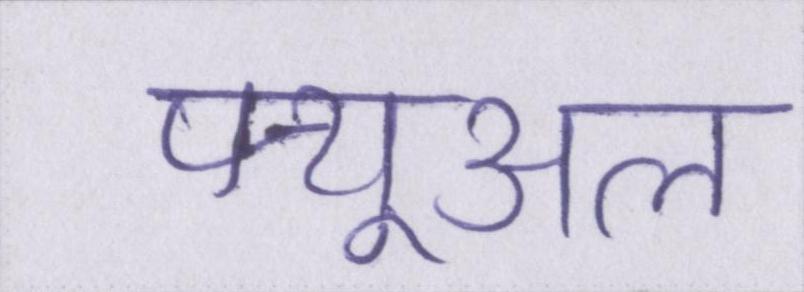 फ्यूअल